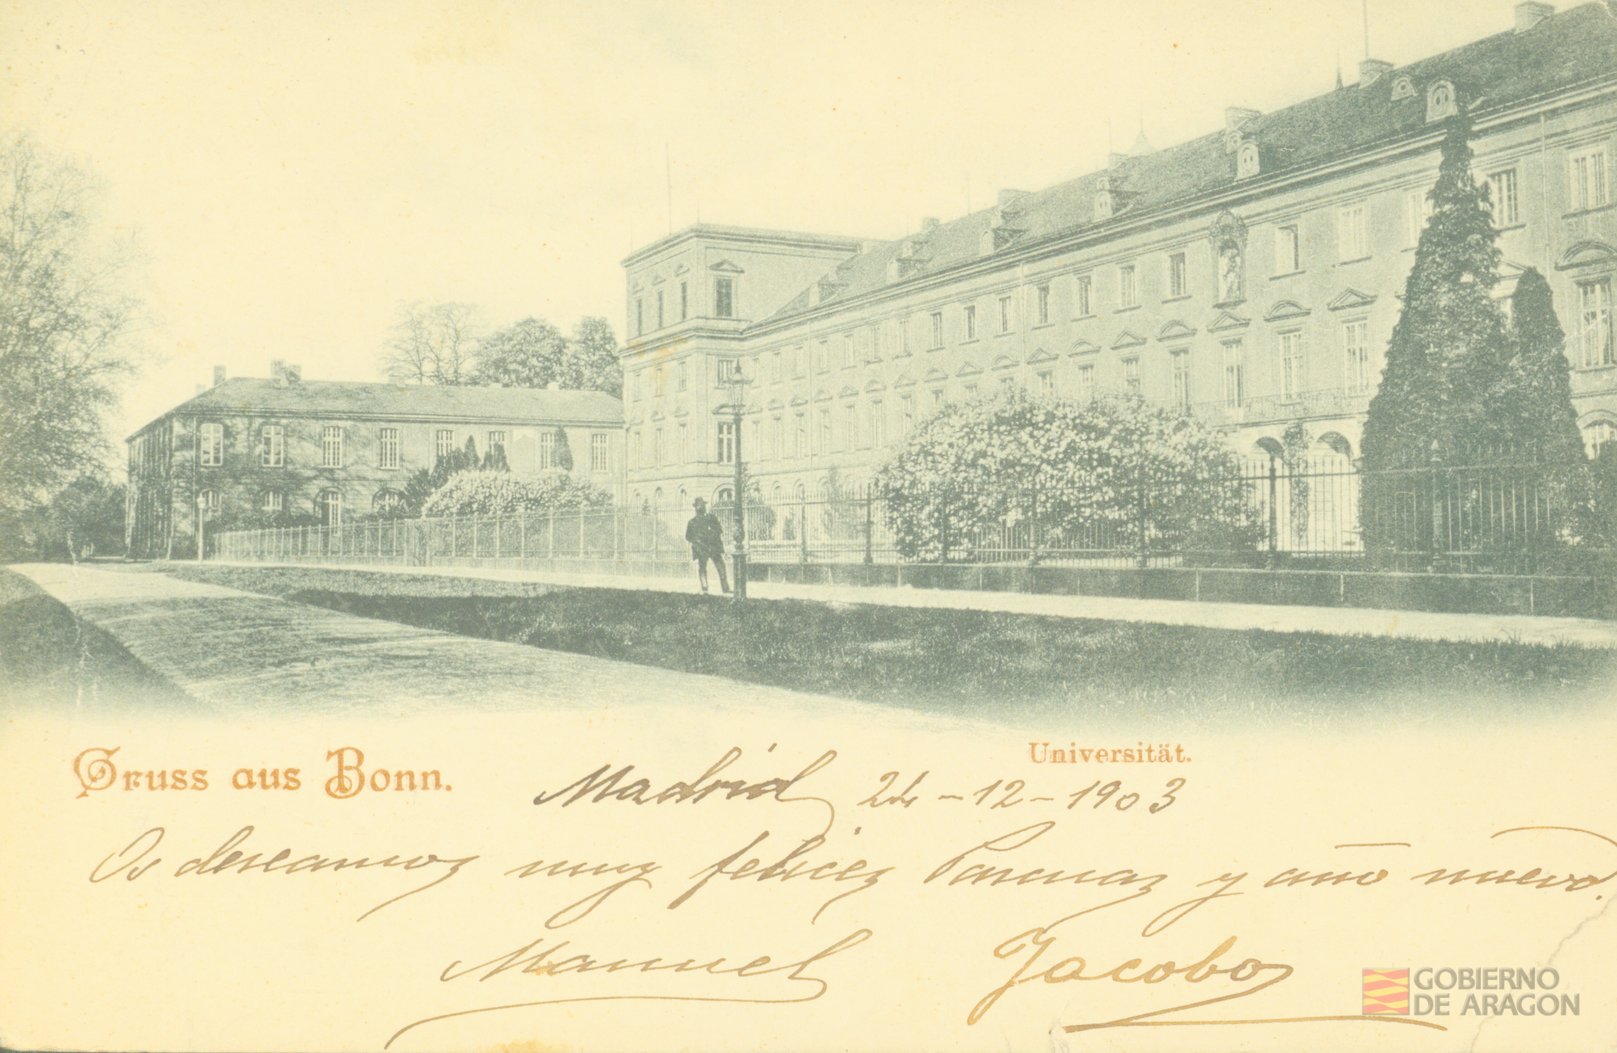 Gruss aus Bonn.
Universität.
Madrid 24-12-1903
Os deseamos muy felices Pascuas y año nuevo.
Manuel Jacobo
GOBIERNO
DE ARAGON